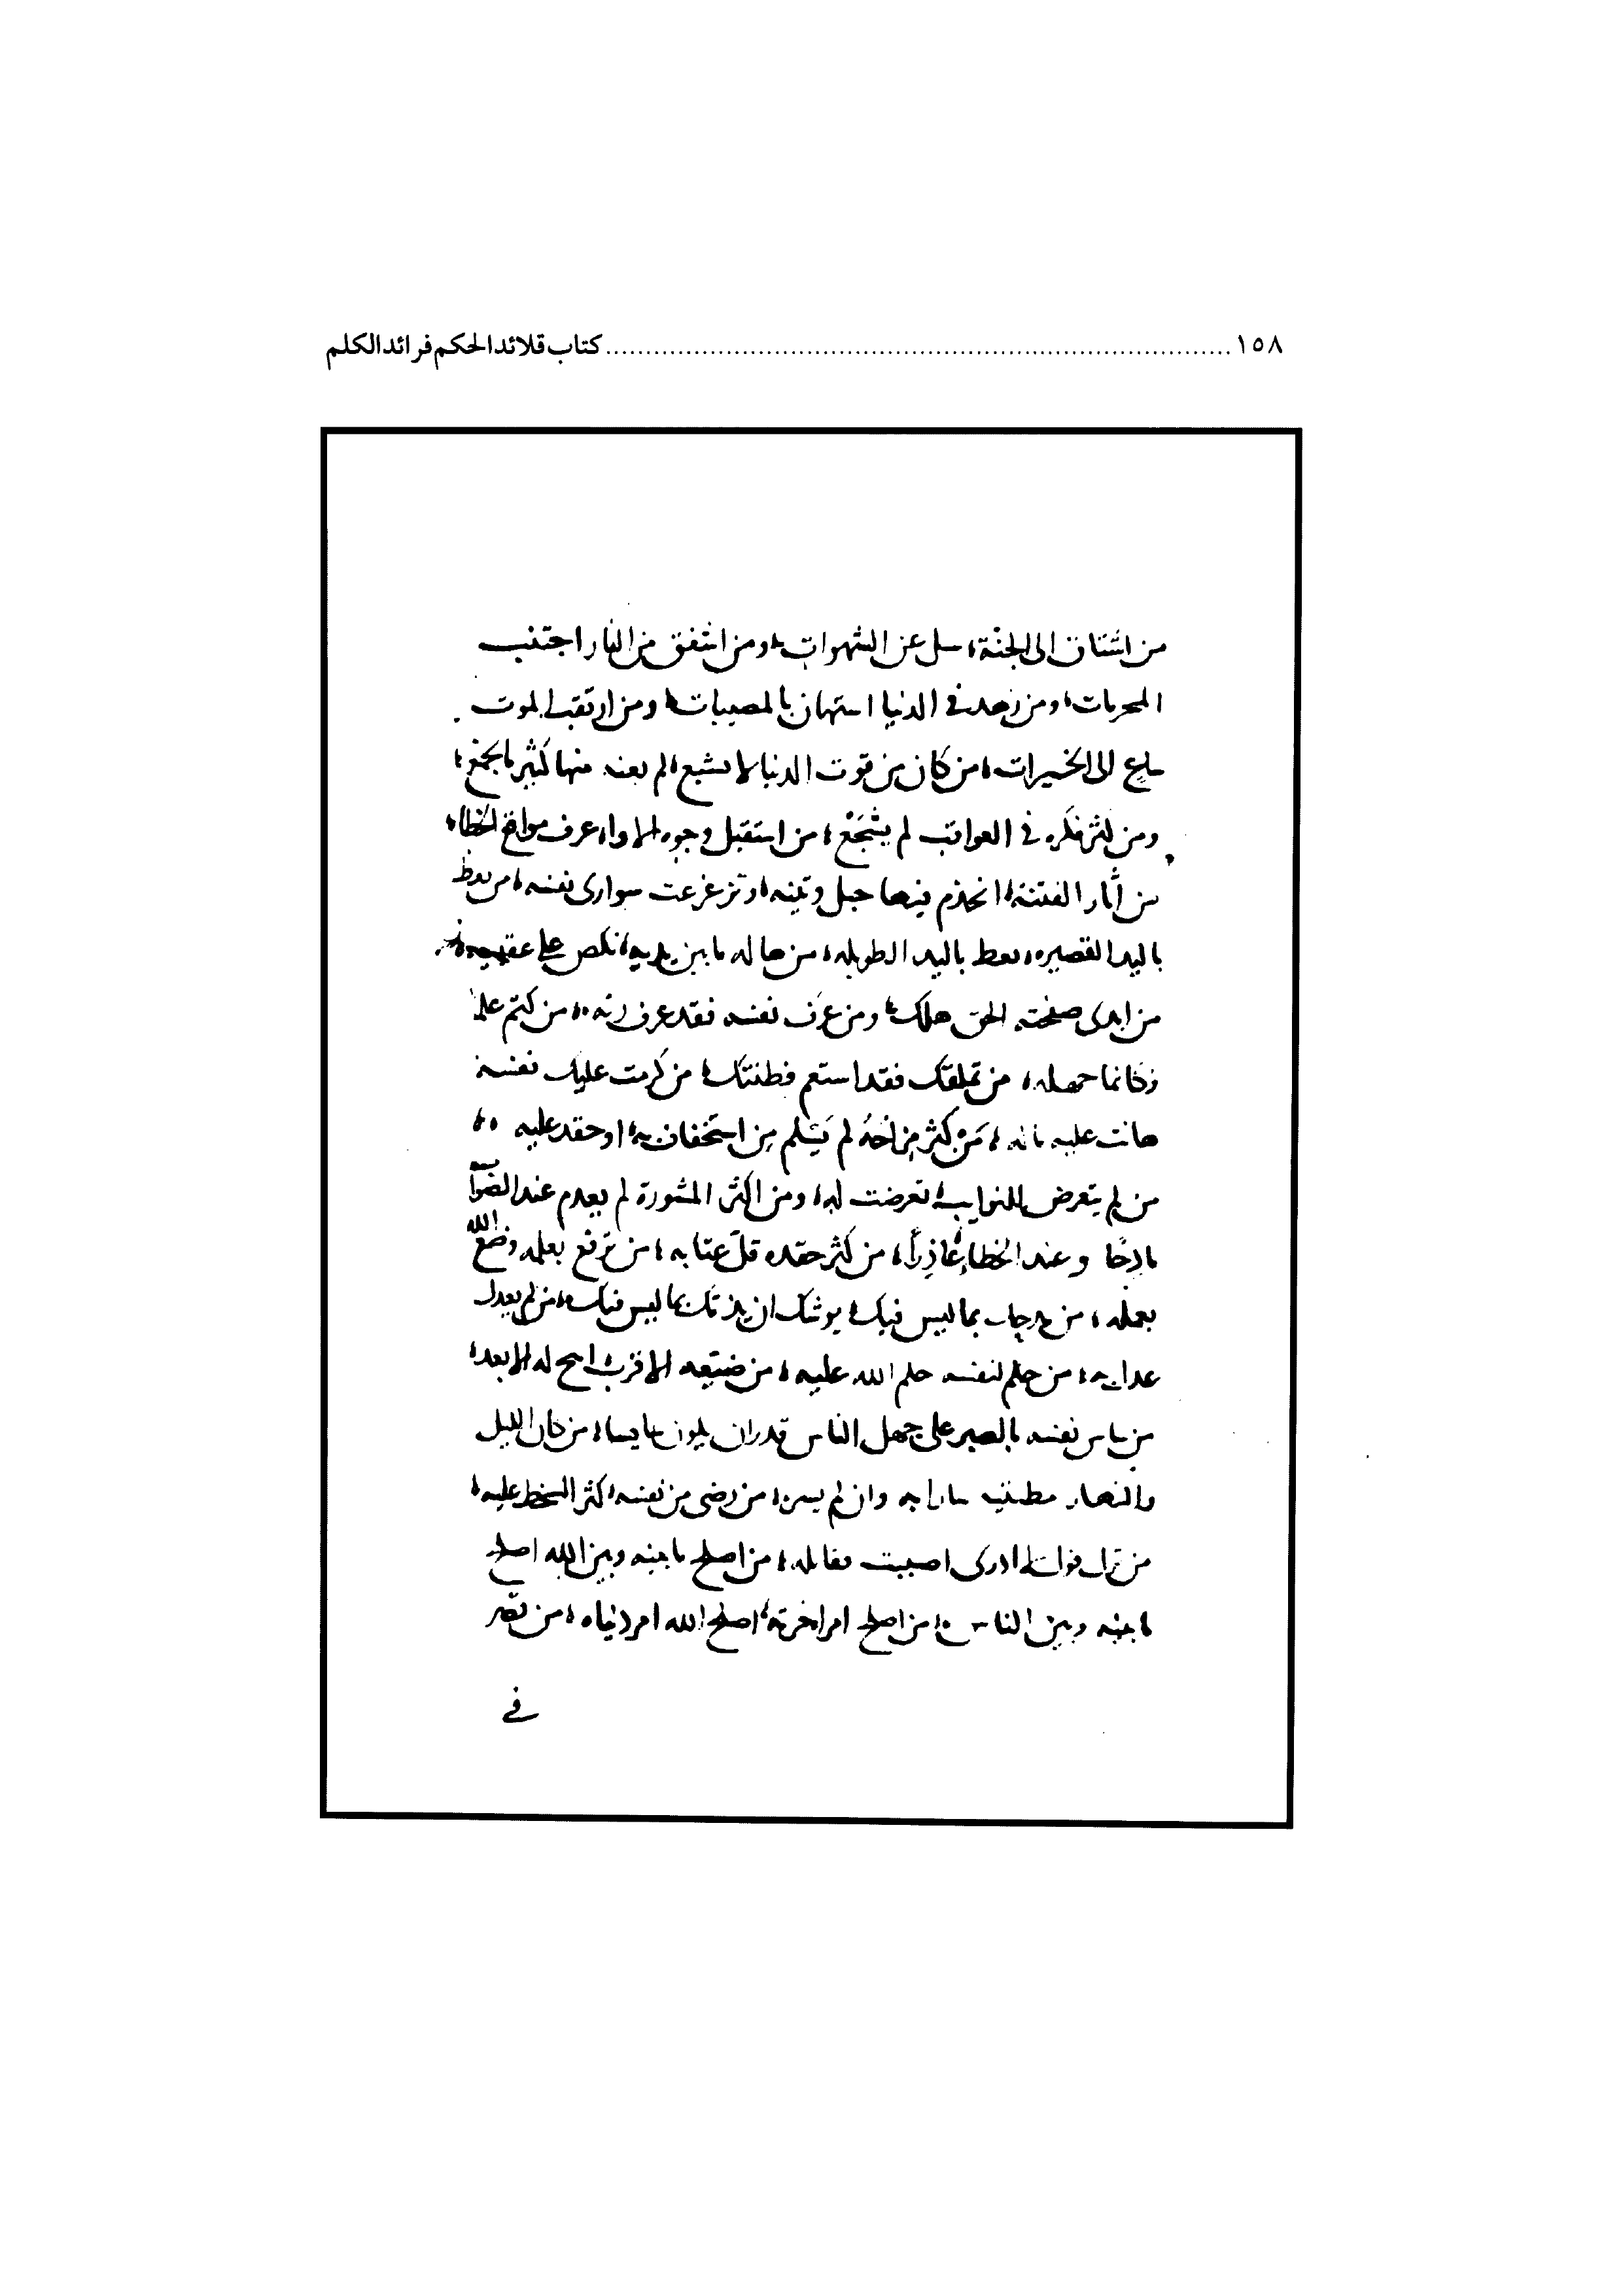 ١٥٨ ........ كتاب قلائد الحكم فرائد الكلم
من اشتاق الى الجنة، سل عن الشهوات، ومن اشفق من النار اجتنب
المحرمات، ومن زهد في الدنيا استهان بالمصيبات، ومن ارتقب الموت
سارع الى الخيرات، من كان من قوت الدنيا لا يشبع، لم يغنه منها كثير ما يجمع،
ومن كثر فكره في العواقب لم يشجع، من استقبل وجوه الآراء، عرف مواقع الخطاء،
من اثار الفتنة، انخذم فيها حبل وتينه، وتزعزعت سوارى نفسه، من يعط
باليد القصيره، يعط باليد الطويله، من هاله ما بين يديه، نكص على عقبيه،
من ابدى صفحته الحق هلك، ومن عرف نفسه فقد عرف ربه، من كتم علما
فكانما جهله، من تملقك فقد استعم فطنتك، من كرمت عليك نفسه
هانت عليه ماله، من كثر مزاحه لم يسلم من استخفاف به، او حقد عليه،
من لم يتعرض للنوايب، تعرضت له، ومن اكثر المشورة لم يعدم عند الصواب
مادحا وعند الخطاء عاذرا، من كثر حقده قل عتابه، من ترفع بعلمه وضعه الله
بعمله، من مدحك بما ليس فيك، يوشك ان يذمك بما ليس فيك، من لم يعدل
به، من حلم لنفسه حلم الله عليه، من ضيعه الاقرب، اتيح له الابعد،
من ساس نفسه بالصبر على جهل الناس قدر ان يكون سايسا، من كان الليل
والنهار مطيتيه سارا به وان لم يسر، من رضى من نفسه، كثر السخط عليه،
من ترك قول لا ادرى اصيبت مقاتله، من اصلح ما بينه وبين الله اصلح
ما بينه وبين الناس، من اصلح امر اخرته، اصلح الله امر دنياه، من قصر
في